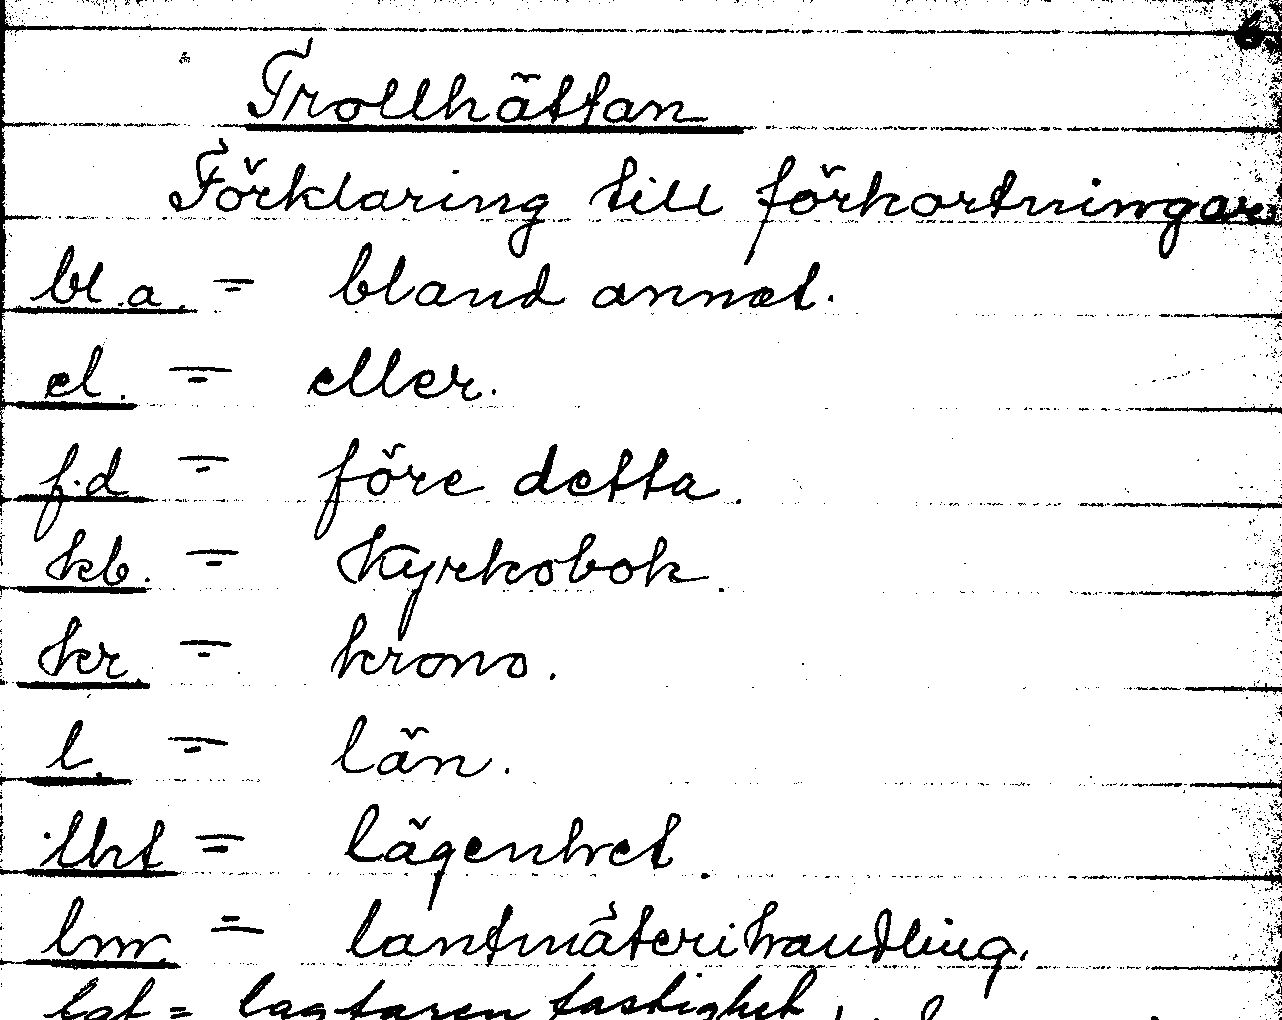 6
Trollhättan
Förklaring till förkortningar
bl.a. = bland annat.
el. = eller.
f.d = före detta.
kb. = Kyrkobok.
kr. = krono.
l. = län.
lht = lägenhet.
lm. = lantmäterihandling.
lgf = lagfaren fastighet